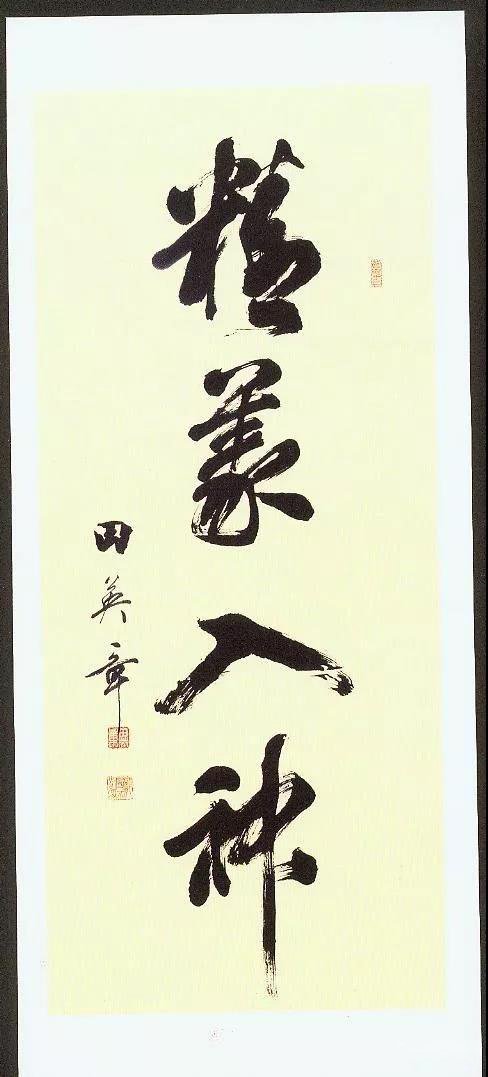 精義入神
田英章